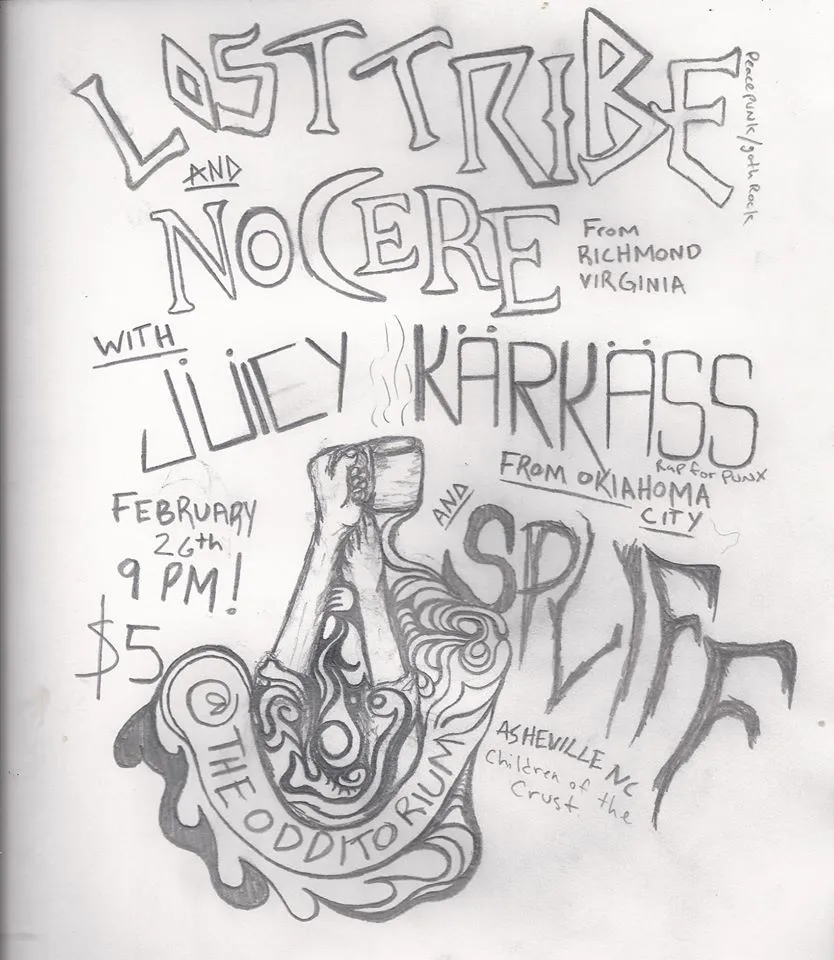 LOST TRIBE
Peacepunk/goth Rock
AND
NOCERE
From
RICHMOND
VIRGINIA
WITH
JÜICY KÄRKÄSS
Rap for PUNX
FROM OKlAHOMA
CITY
FEBRUARY
26th
9 PM!
$5
AND
SPLIFF
ASHEVILLE NC
Children of the
Crust
@ THE ODDITORIUM